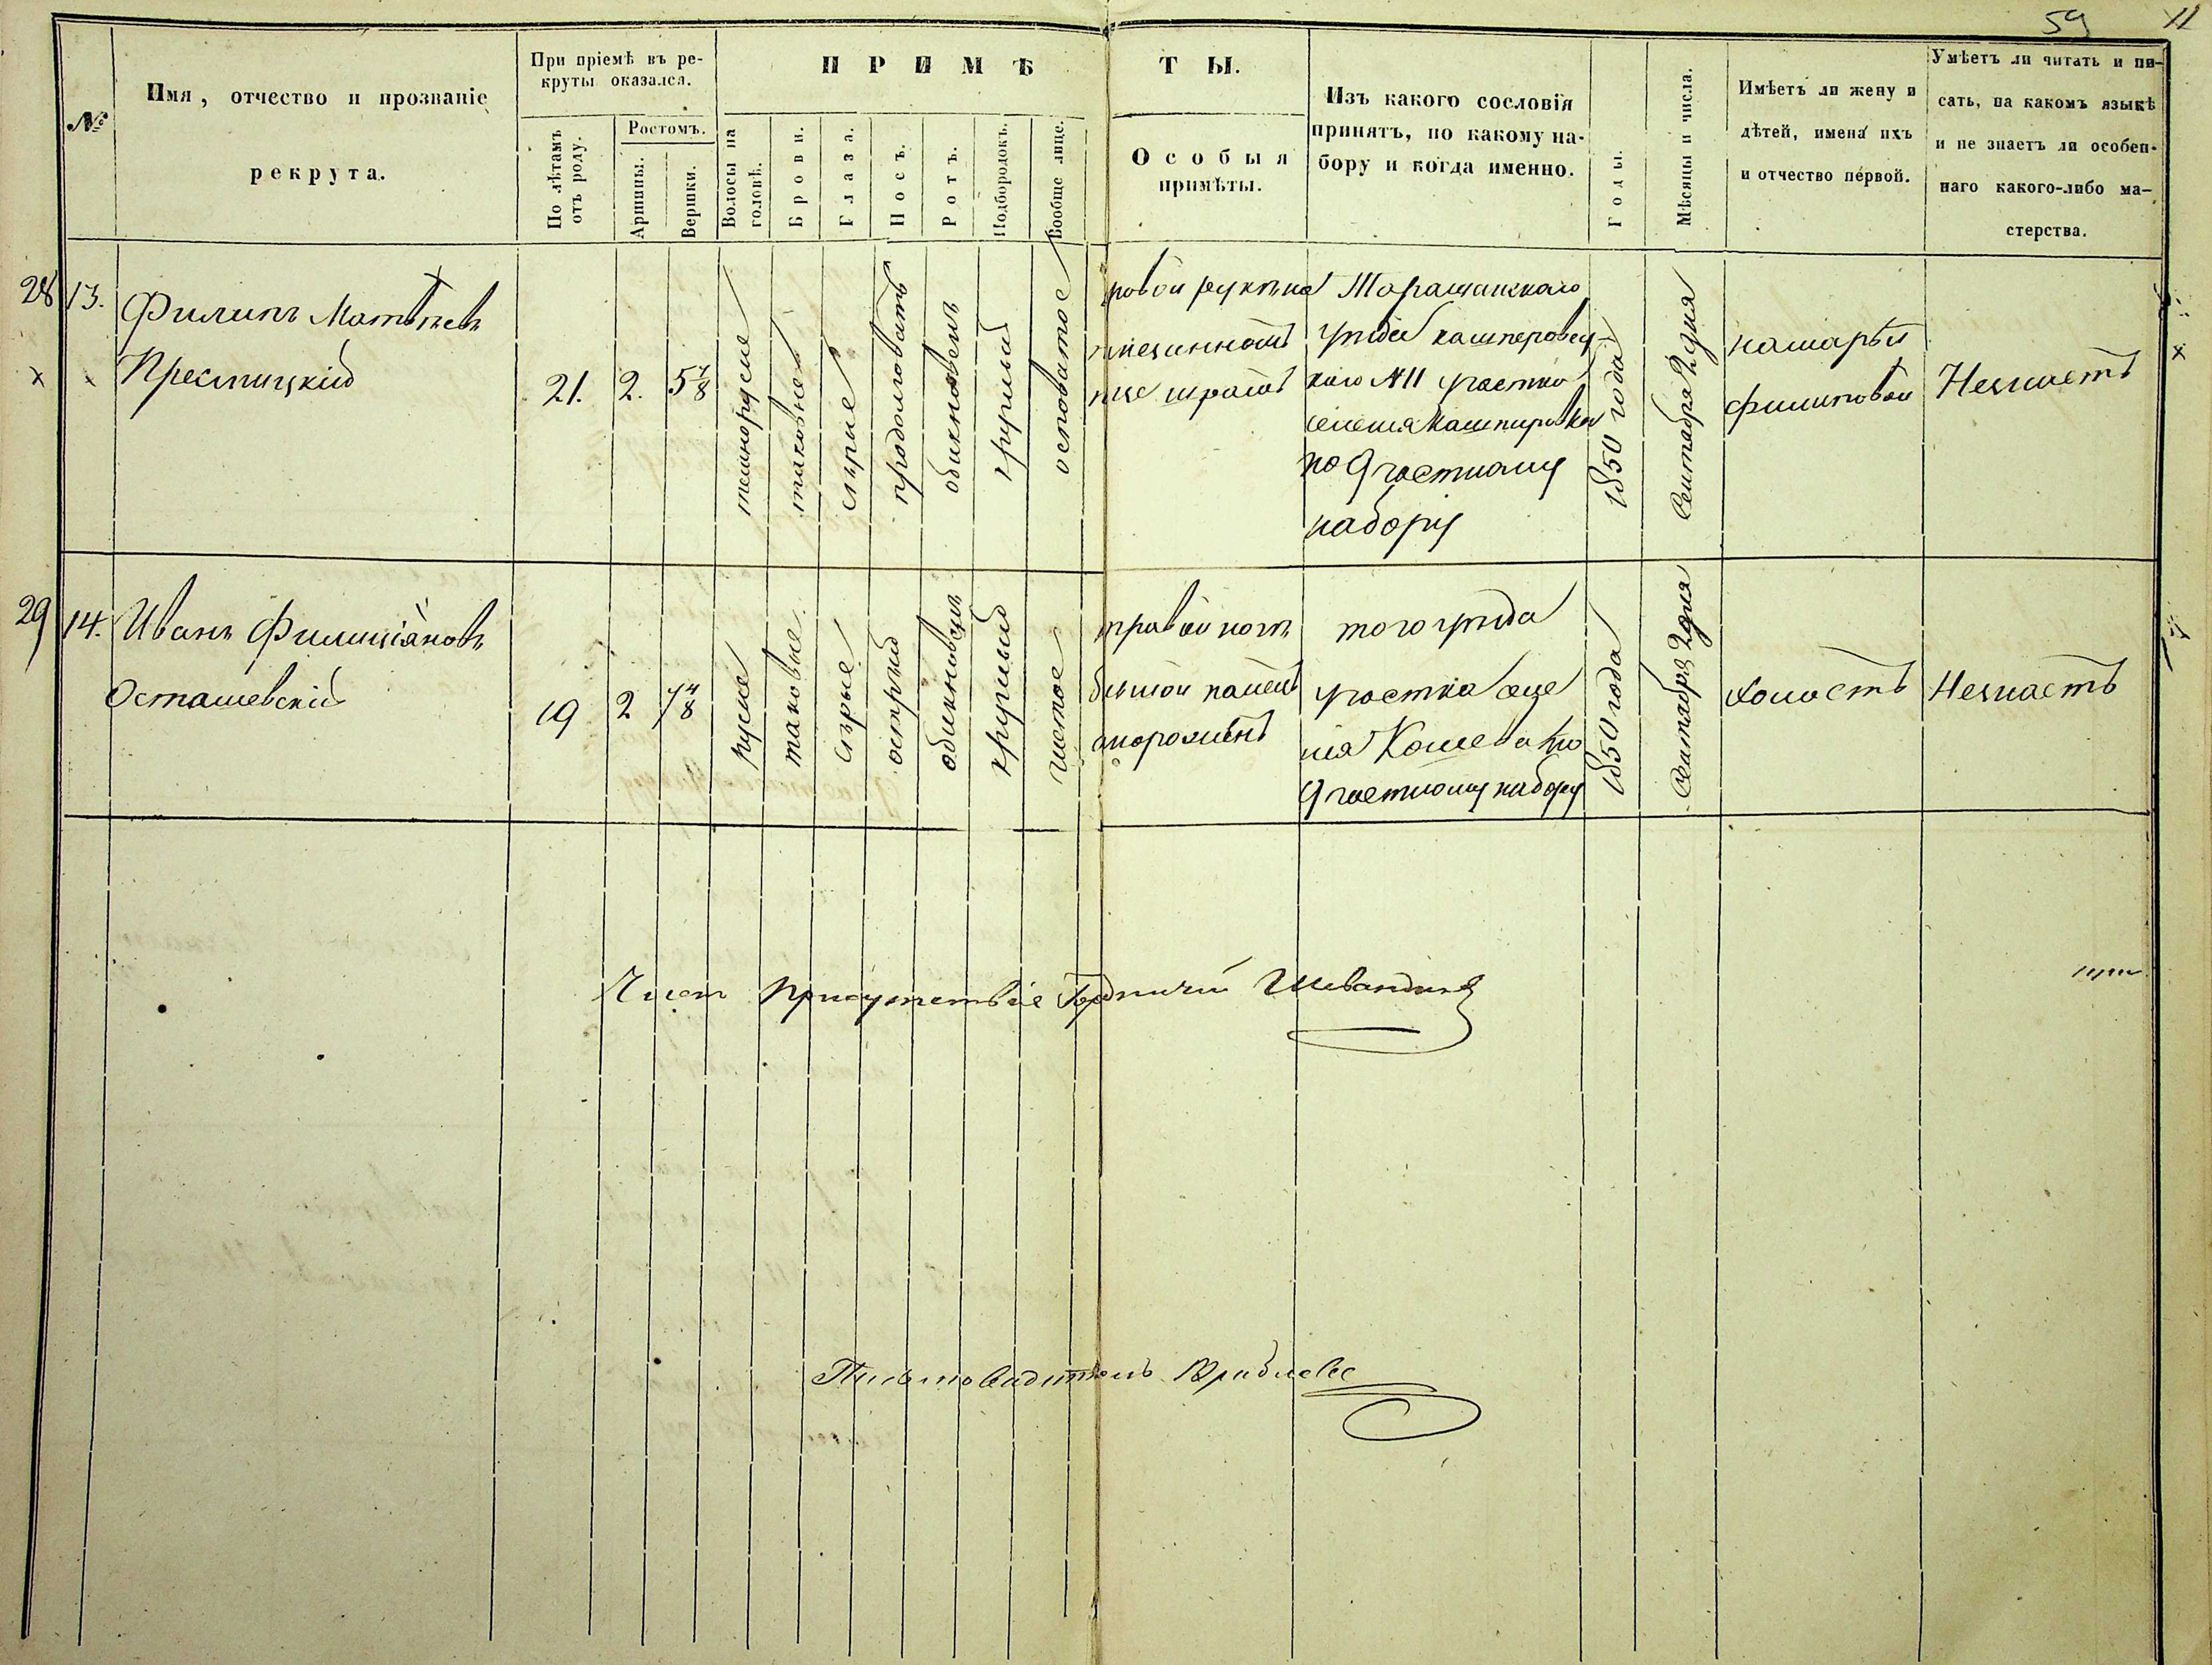 59 11
№
Имя, отчество и прозваніе
рекрута.
При пріемѣ въ ре-
круты оказался.
По лѣтамъ
отъ роду.
Ростомъ.
Аршины.
Вершки.
ПРИМѢ
ТЫ.
Волосы на
головѣ.
Брови.
Глаза.
Носъ.
Ротъ.
Подбородокъ.
Вообще лице.
Особыя
примѣты.
Изъ какого сословія
принятъ, по какому на-
бору и когда именно.
Годы.
Мѣсяцы и числа.
Имѣетъ ли жену и
дѣтей, имена ихъ
и отчество первой.
Умѣетъ ли читать и пи-
сать, на какомъ языкѣ
и не знаетъ ли особен-
наго какого-либо ма-
стерства.
28 13.
Филипъ Матвѣевъ
Преслицкій
21.
2.
5 7/8
темнорусые
таковые
сѣрые
продолговатъ
обикновенъ
круглый
осповатое
шрамъ
Таращанскаго
уѣзда кашперовск-
каго №11 участка
селенія Кашперовки
по 9 частному
набору
1850 года
Сентября 2 дня
на марьи
Филиповой
Незнаетъ
29 14.
Иванъ Филиціановъ
Осташевскій
19
2
7 4/8
русые
таковые
сѣрые
острый
обикновенъ
круглый
чистое
правой ноги
большой палецъ
отороженъ
того уѣзда
участка селе
нія Кошевато по
9 частному набору
1850 года
Сентября 2 дня
холостъ
Незнаетъ
Член Присутствіе Городничій
Письмоводитель